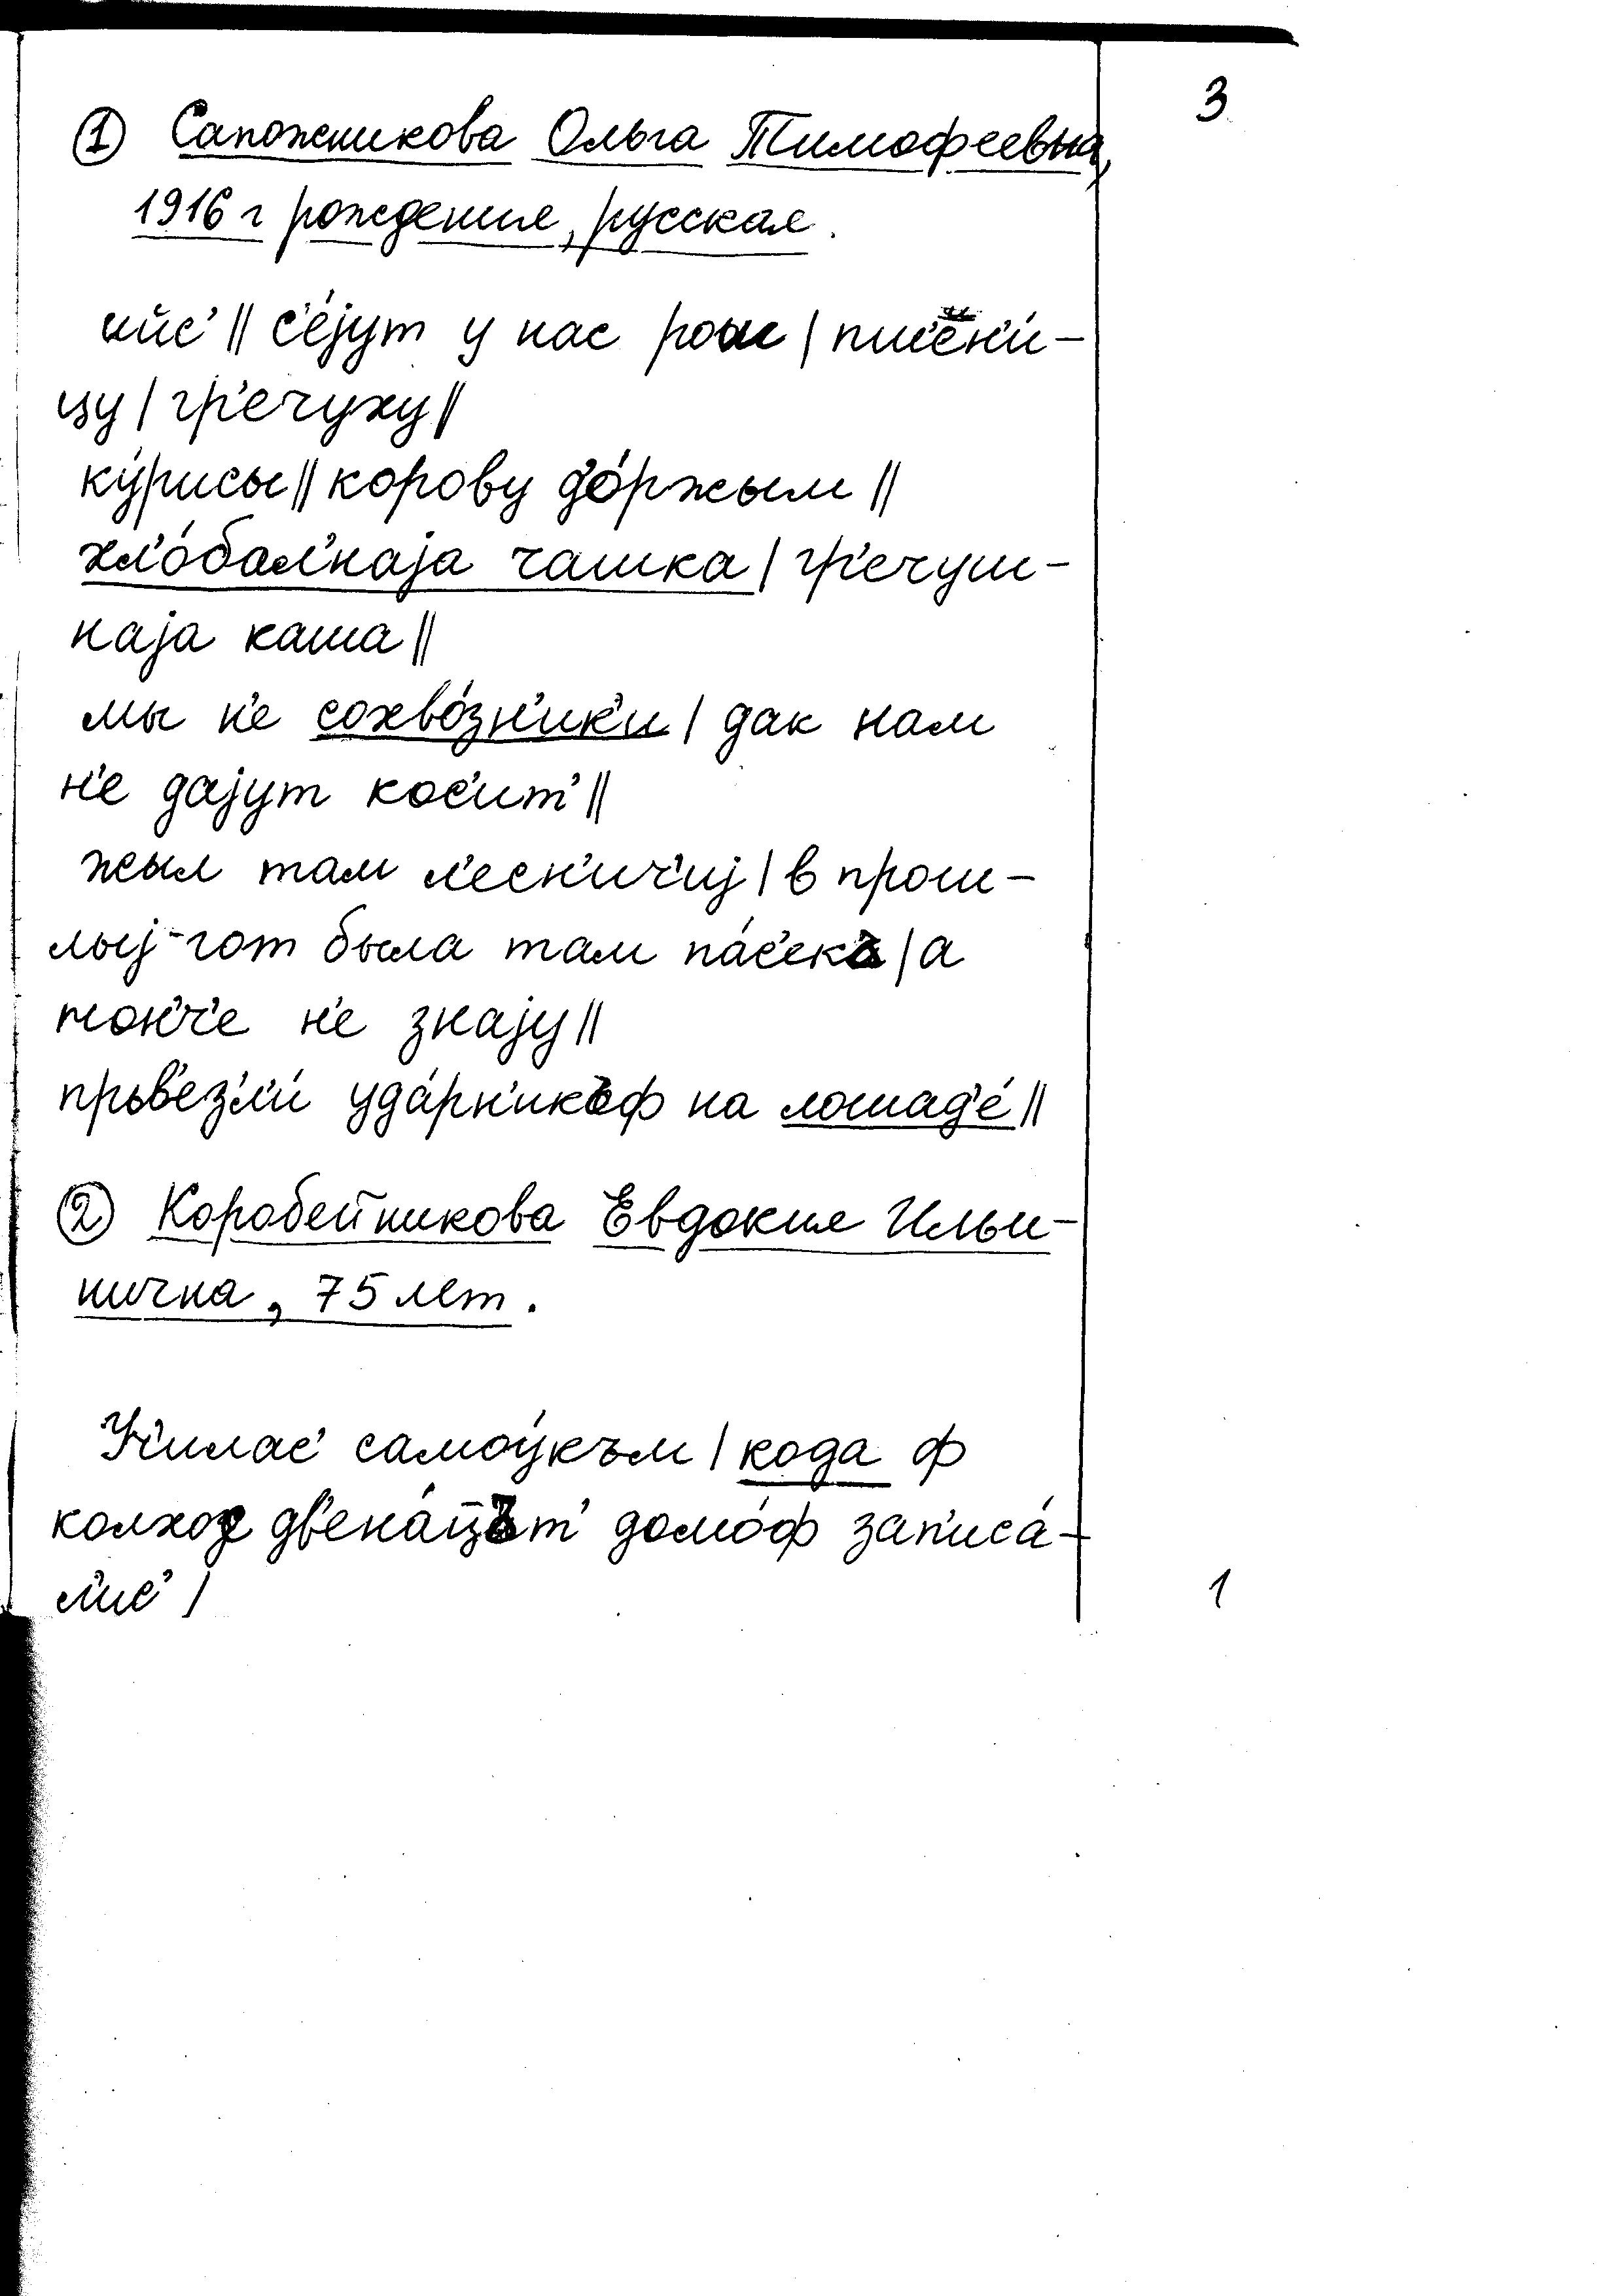 3
① Сапожникова Ольга Тимофеевна,
1916 г рождения, русская.
ийс' || с'е́jут у нас рош | пшен'и́-
цу | гр'ечуху ||
ку́рисы || корову до́ржым ||
хл'о́бал'наjа чашка | гр'ечуш-
наjа каша ||
мы н'е сохво́зн'ик'и | дак нам
н'е даjут кос'ит' ||
жыл там л'есн'ич'иj | в прош-
лыj гот была там па́с'екъ | а
тон'ч'е н'е знаjу ||
пръв'езл'и́ уда́рн'икъф на лошад'е́ ||
② Коробейникова Евдокия Ильи-
нична, 75 лет.
Уч'илас' самоу́към | кода ф
колхоз дв'ена́цът' домо́ф зап'иса́-
л'ис' |
1